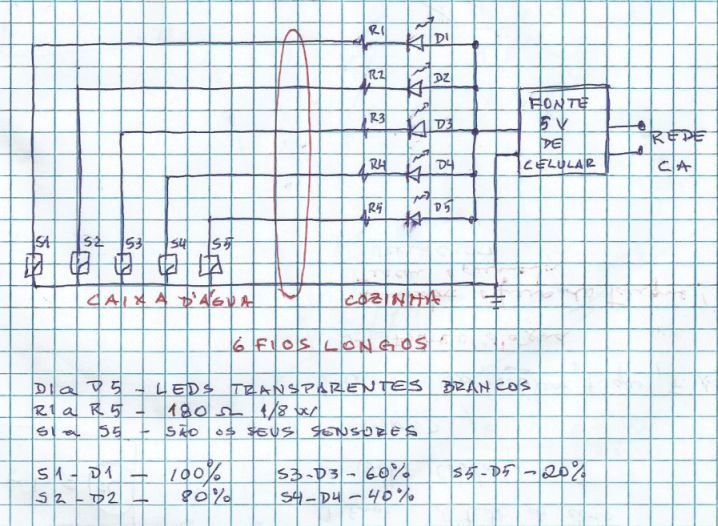 R1 D1
R2 D2
R3 D3
R4 D4
R5 D5
FONTE
5V
DE
CELULAR
REDE
CA
S1 S2 S3 S4 S5
CAIXA D'ÁGUA COZINHA
6 FIOS LONGOS
D1 a D5 - LEDS TRANSPARENTES BRANCOS
R1 a R5 - 180 Ω 1/8 W
S1 a S5 - SÃO OS SEUS SENSORES
S1-D1 - 100% S3-D3-60% S5-D5-20%
S2-D2 - 80% S4-D4-40%